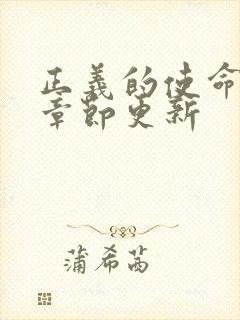 正義的使命
章節更新
蒲希茜